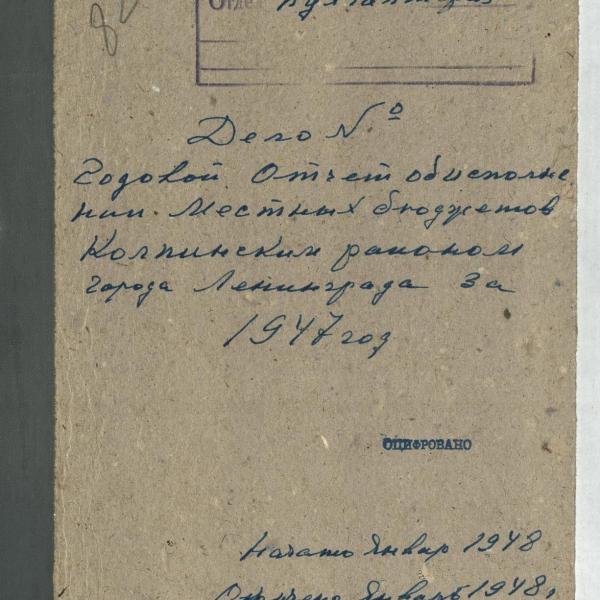 82
Отдел Бухгалтерия
Дело №
Годовой Отчет об исполне
нии Местных бюджетов
Колпинским районом
города Ленинграда за
1947 год
ОЦИФРОВАНО
Начато Январ 1948
Окончено Январь 1948 г